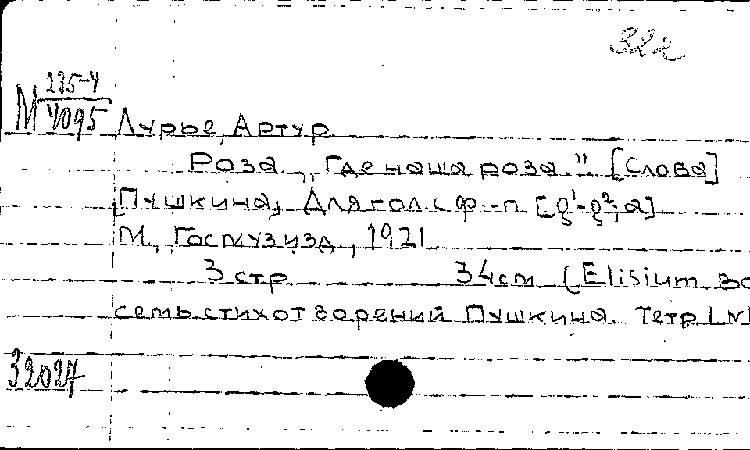 322
М 225-4
4095
Лурье, Артур
Роза „Где наша роза" [Слова
Пушкина, Для гол. с ф-п [g¹-g², a]
М., Госмузизд, 1921
3 стр 34 см (Elisium
семь стихотворений Пушкина. Тетр I
32027